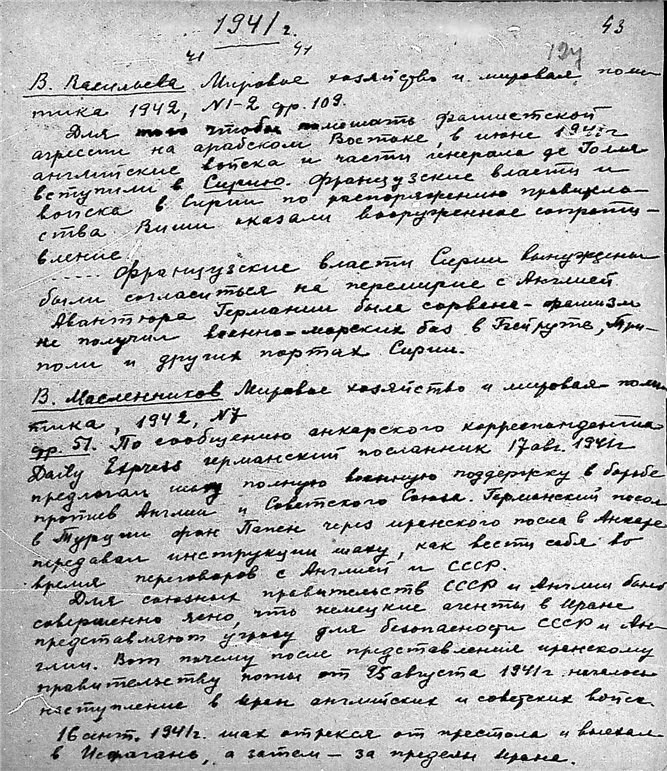 1941 г.
43
41 41
124
В. Васильева Мировое хозяйство и мировая поли-
тика 1942, N1-2 стр. 109.
Для того чтобы помешать фашистской
агрессии на арабском Востоке, в июне 1941г
английские войска и части генерала де Голля
вступили в Сирию. Французские власти и
войска в Сирии по распоряжению правитель-
ства Виши оказали вооруженное сопроти-
вление
..... Французские власти Сирии вынуждены
были согласиться на перемирие с Англией
Авантюра Германии была сорвана - фашизм
не получил военно-морских баз в Бейруте, Три-
поли и других портах Сирии.
В. Масленников Мировое хозяйство и мировая поли-
тика, 1942, N7
стр. 51. По сообщению анкарского корреспондента
Daily Express германский посланник 17 авг. 1941г
предлагал шаху полную военную поддержку в борьбе
против Англии и Советского Союза. Германский посол
в Турции фон Папен через иранского посла в Анкаре
передавал инструкции шаху, как вести себя во
время переговоров с Англией и СССР.
Для союзных правительств СССР и Англии было
совершенно ясно, что немецкие агенты в Иране
представляют угрозу для безопасности СССР и Ан-
глии. Вот почему после представления иранскому
правительству ноты от 25 августа 1941г. началось
наступление в Иран английских и советских войск.
16 сент. 1941г. шах отрекся от престола и выехал
в Исфагань, а затем - за пределы Ирана.